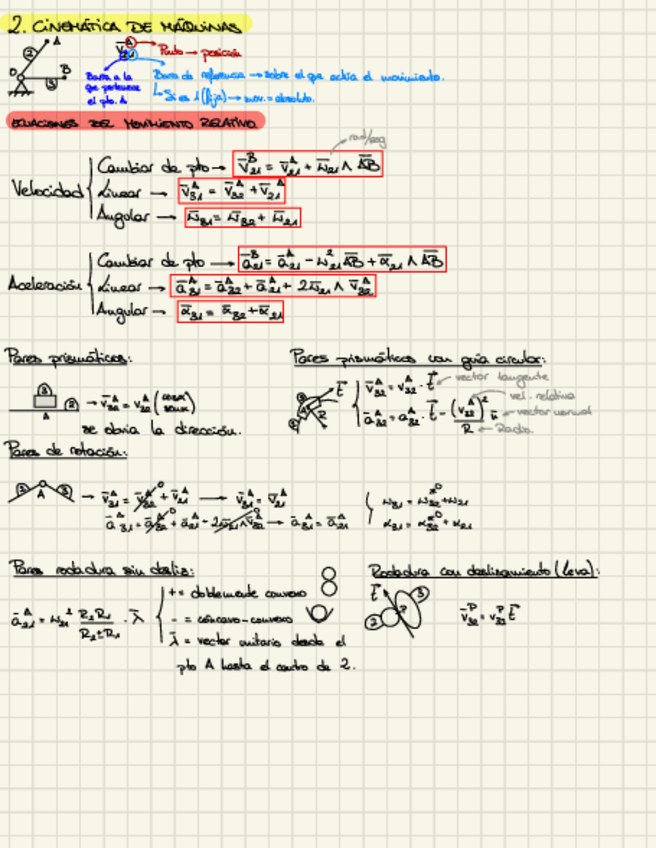 2. CINEMÁTICA DE MÁQUINAS
A
B
O
2
3
V̄ᴬ₂₁ Punto → posición
Barra a la que pertenece el pto. A
Barra de referencia → sobre el que actúa el movimiento.
↳ Si es 1 (fija) → mov. = absoluto.
ECUACIONES DEL MOVIMIENTO RELATIVO
rad/seg
Velocidad
Cambiar de pto → V̄ᴮ₂₁ = V̄ᴬ₂₁ + ω̄₂₁ ∧ AB
Linear → V̄ᴬ₃₁ = V̄ᴬ₃₂ + V̄ᴬ₂₁
Angular → ω̄₃₁ = ω̄₃₂ + ω̄₂₁
Aceleración
Cambiar de pto → āᴮ₂₁ = āᴬ₂₁ - ω²₂₁ AB + ᾱ₂₁ ∧ AB
Linear → āᴬ₃₁ = āᴬ₃₂ + āᴬ₂₁ + 2ω̄₂₁ ∧ V̄ᴬ₃₂
Angular → ᾱ₃₁ = ᾱ₃₂ + ᾱ₂₁
Pares prismáticos:
3
2
A
→ V̄ᴬ₃₂ = V₃₂ᴬ (cosα senα)
se obvia la dirección.
Pares prismáticos con guía circular:
t̄
R
V̄ᴬ₃₂ = V₃₂ᴬ · t̄ ← vector tangente
vel. relativa
āᴬ₃₂ = a₃₂ᴬ · t̄ - (V₃₂ᴬ)² / R n̄ ← vector normal
R ← Radio
Pares de rotación:
2 A 3
→ V̄ᴬ₃₁ = V̄ᴬ₃₂ 0 + V̄ᴬ₂₁ → V̄ᴬ₃₁ = V̄ᴬ₂₁
āᴬ₃₁ = āᴬ₃₂ 0 + āᴬ₂₁ + 2ω̄₂₁ ∧ V̄ᴬ₃₂ 0 → āᴬ₃₁ = āᴬ₂₁
ω₃₁ = ω₃₂ + ω₂₁
α₃₁ = α₃₂ + α₂₁
Pares rodadura sin desliz:
āᴬ₂₁ = ω₂₁² R₂R₁ / R₂±R₁ · λ̄
+ = doblemente convexo
- = cóncavo-convexo
λ̄ = vector unitario desde el
pto A hasta el centro de 2.
Rodadura con deslizamiento (leva):
t̄
3
P
2
V̄ᴾ₃₂ = V₃₂ᴾ t̄